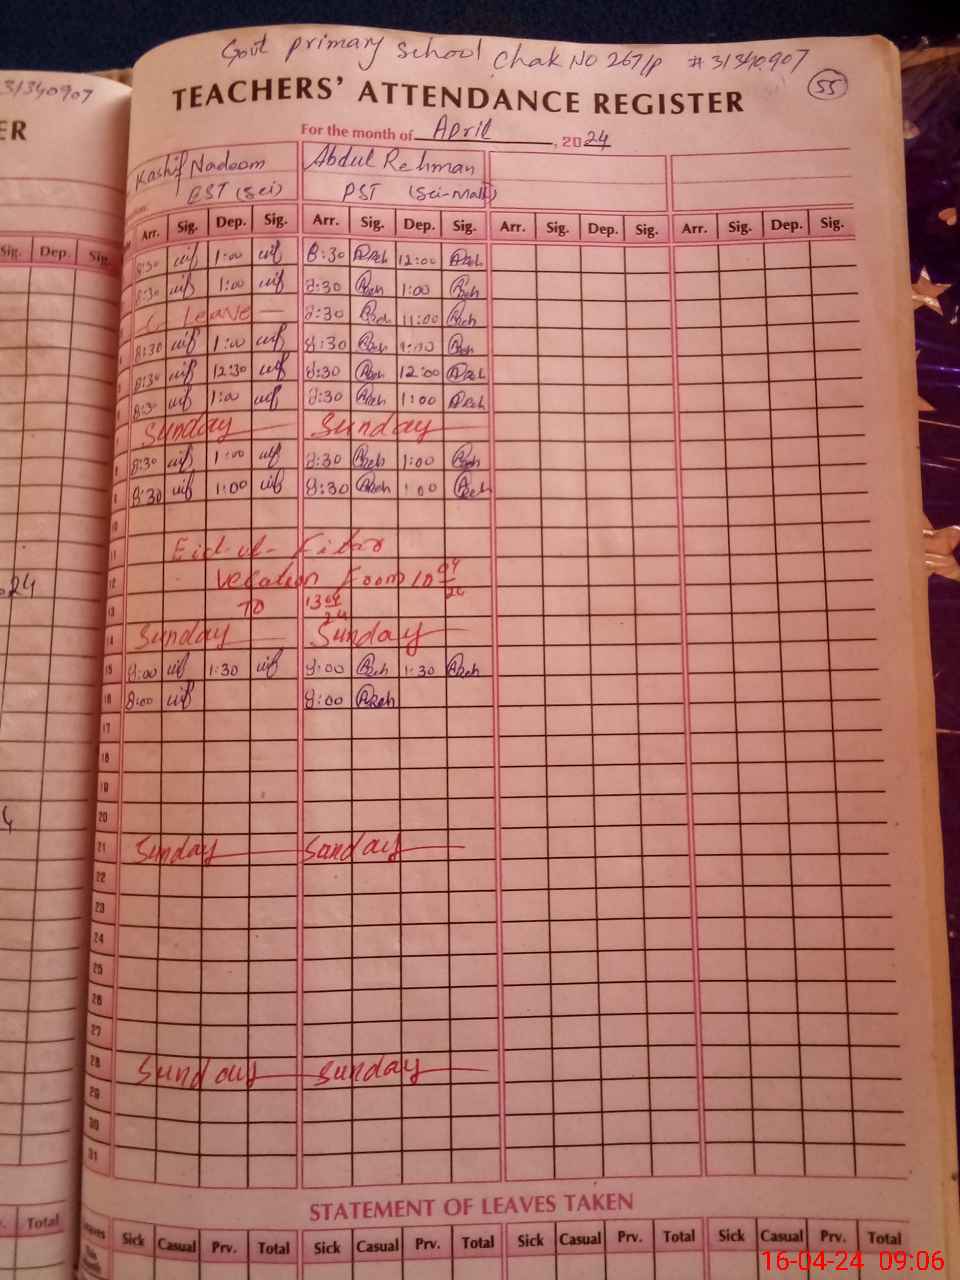 Govt primary school Chak No 267/p # 31340907
31340907
55
TEACHERS' ATTENDANCE REGISTER
ER
For the month of April, 2024
Kashif Nadeem Abdul Rehman
EST (Sci) PST (Sci-Math)
Arr. Sig. Dep. Sig. Arr. Sig. Dep. Sig. Arr. Sig. Dep. Sig. Arr. Sig. Dep. Sig.
Sig. Dep. Sig.
8:30 1:00 8:30 12:00
8:30 1:00 8:30 1:00
C. Leave 8:30 11:00
4 8:30 1:00 8:30 1:00
8:30 12:30 8:30 12:00
8:30 1:00 8:30 1:00
7 Sunday Sunday
8 8:30 1:00 8:30 1:00
9 8:30 1:00 8:30 1:00
10
11 Eid-ul-Fitar
12 Vecation From 10 04/24
13 To 13 04/24
14 Sunday Sunday
15 8:00 1:30 8:00 1:30
16 8:00 8:00
17
18
19
20
21 Sunday Sunday
22
23
24
25
26
27
28 Sunday Sunday
29
30
31
STATEMENT OF LEAVES TAKEN
Total
Leaves Sick Casual Prv. Total Sick Casual Prv. Total Sick Casual Prv. Total Sick Casual Prv. Total
16-04-24 09:06